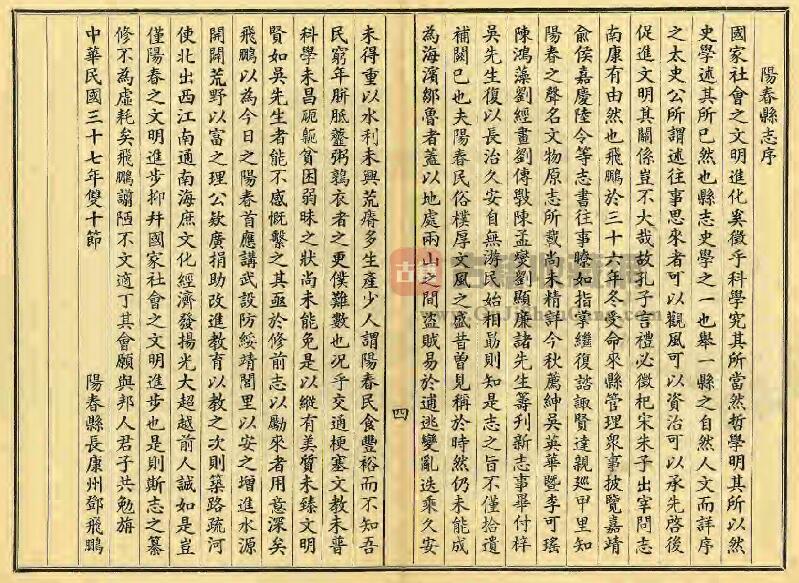 陽春縣志序
國家社會之文明進化奚徵乎科學究其所當然哲學明其所以然
史學述其所已然也縣志史學之一也舉一縣之自然人文而詳序
之太史公所謂述往事思來者可以觀風可以資治可以承先啓後
促進文明其關係豈不大哉故孔子言禮必徵杞宋朱子出宰問志
南康有由然也飛鵬於三十六年冬受命來縣管理眾事披覽嘉靖
俞侯嘉慶陸令等志書往事瞭如指掌繼復諮諏賢達親巡甲里知
陽春之聲名文物原志所載尚未精詳今秋薦紳吳英華暨李可瑤
陳鴻藻劉經畫劉傅斅陳孟燮劉顯廉諸先生籌刊新志事畢付梓
吳先生復以長治久安自無游民始相勗則知是志之旨不僅拾遺
補闕已也夫陽春民俗樸厚文風之盛昔曽見稱於時然仍未能成
為海濱鄒魯者蓋以地處兩山之間盜賊易於逋逃變亂迭乘久安
四
未得重以水利未興荒瘠多生產少人謂陽春民食豐裕而不知吾
民窮年胼胝虀粥鶉衣者之更僕難數也况乎交通梗塞文教未普
科學未昌阢隉貧困弱昧之狀尚未能免是以縱有美質未臻文明
賢如吳先生者能不感慨繫之其亟於修前志以勵來者用意深矣
飛鵬以為今日之陽春首應講武設防綏靖閭里以安之增進水源
開闢荒野以富之理公欵廣捐助改進教育以教之次則築路疏河
使北出西江南通南海庶文化經濟發揚光大超越前人誠如是豈
僅陽春之文明進步抑幷國家社會之文明進步也是則斯志之纂
修不為虛耗矣飛鵬譾陋不文適丁其會願與邦人君子共勉旃
中華民國三十七年雙十節
陽春縣長康州鄧飛鵬